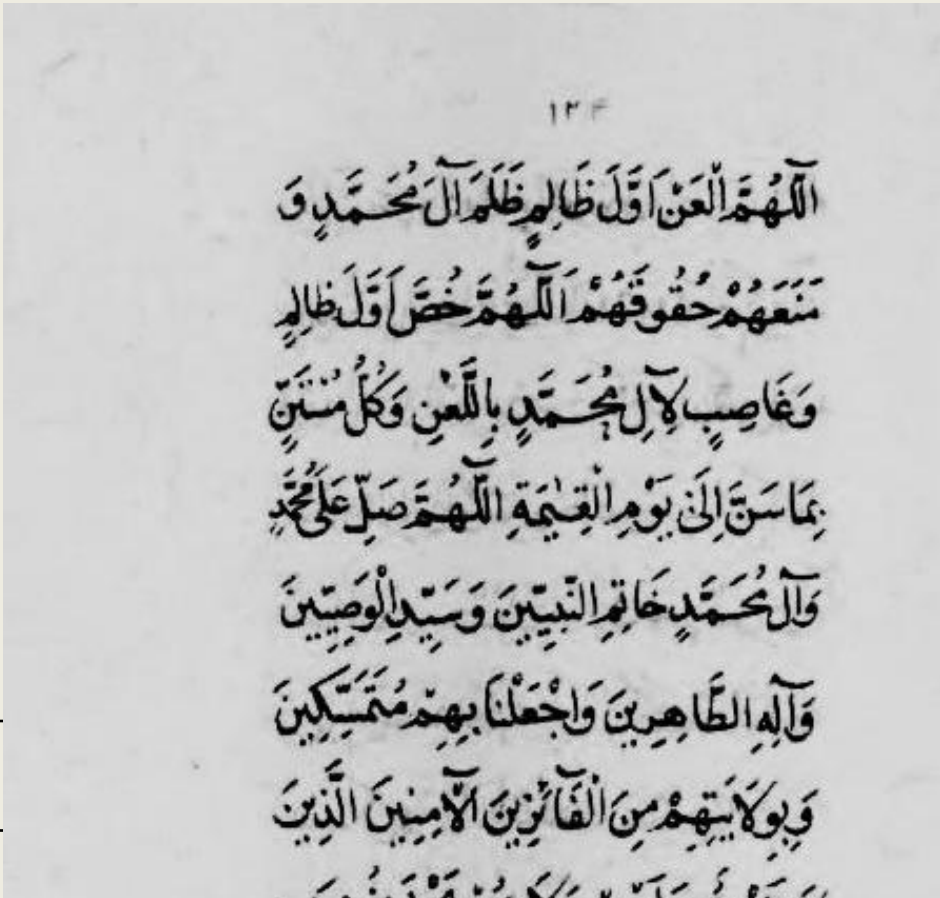 ۱۳۴
اَللّٰهُمَّ الْعَنْ اَوَّلَ ظَالِمٍ ظَلَمَ آلَ مُحَمَّدٍ وَ
مَنَعَهُمْ حُقُوقَهُمْ اَللّٰهُمَّ خُصَّ اَوَّلَ ظَالِمٍ
وَغَاصِبٍ لِآلِ مُحَمَّدٍ بِاللَّعْنِ وَكُلَّ مُسْتَنٍّ
بِمَا سَنَّ اِلَىٰ يَوْمِ الْقِيٰمَةِ اللّٰهُمَّ صَلِّ عَلَىٰ مُحَمَّدٍ
وَآلِ مُحَمَّدٍ خَاتِمِ النَّبِيِّينَ وَسَيِّدِ الْوَصِيِّينَ
وَآلِهِ الطَّاهِرِينَ وَاجْعَلْنَا بِهِمْ مُتَمَسِّكِينَ
وَبِوِلَايَتِهِمْ مِنَ الْفَآئِزِينَ الْآمِنِينَ الَّذِينَ